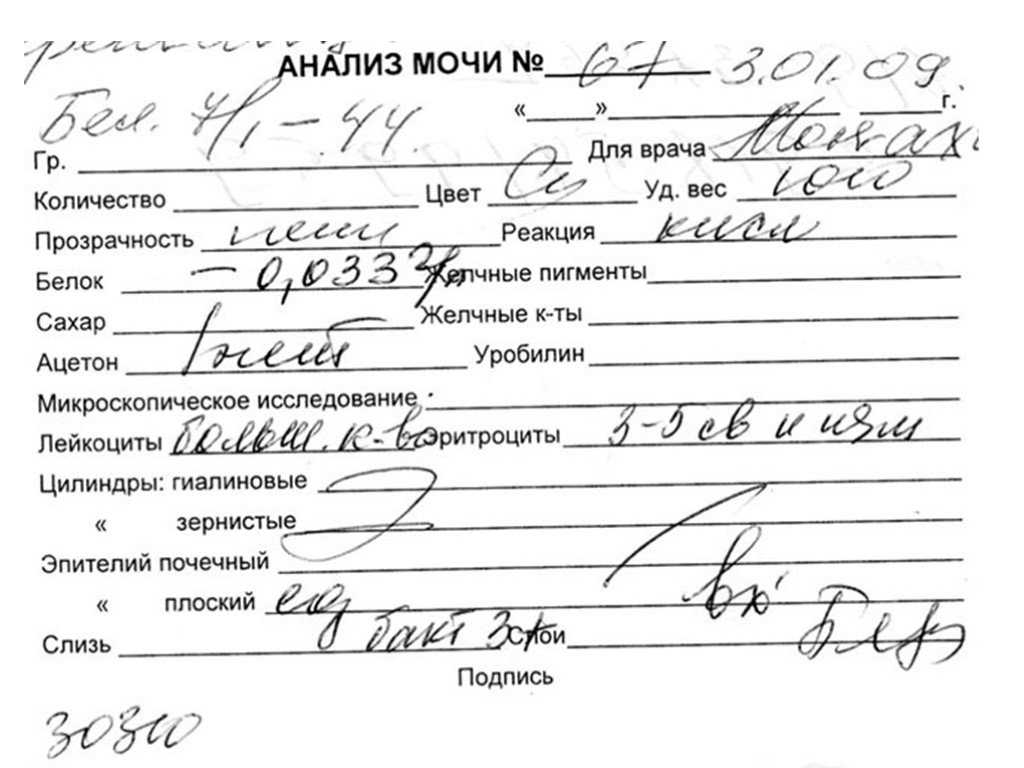 АНАЛИЗ МОЧИ № 67 3.01.09
« » г.
Бел. 7/1 - 44
Гр. Для врача
Количество Цвет Уд. вес 1010
Прозрачность Реакция кисл
Белок - 0,033 Желчные пигменты
Сахар Желчные к-ты
Ацетон нет Уробилин
Микроскопическое исследование
Лейкоциты больш. к-во Эритроциты 3-5 св и изм
Цилиндры: гиалиновые
« зернистые
Эпителий почечный
« плоский ед
Слизь бакт 3+ Слои
Подпись